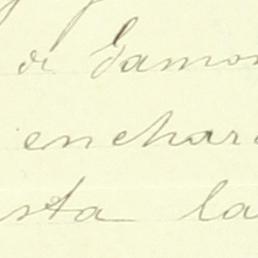 de Gamon
enchar
sta la